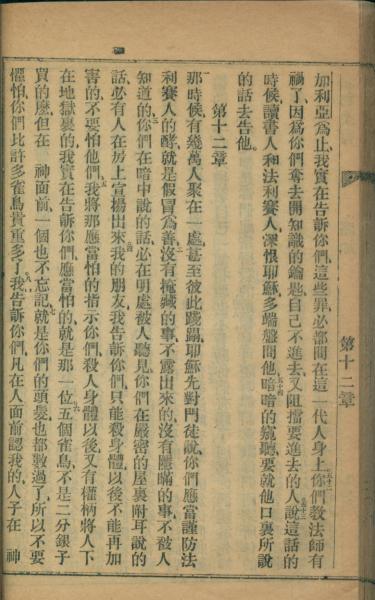 加利亞爲止、我實在告訴你們、這些罪必都問在這一代人身上、你們敎法師有
禍了、因爲你們奪去開知識的鑰匙、自己不進去、又阻擋要進去的人、說這話的
時候、讀書人和法利賽人深恨耶穌、多端盤問他、暗暗的窺聽、要就他口裏所說
的話去告他。
第十二章
那時候、有幾萬人聚在一處、甚至彼此踐踏、耶穌先對門徒說、你們應當謹防法
利賽人的酵、就是假冒爲善、沒有掩藏的事、不露出來的、沒有隱瞞的事、不被人
知道的、你們在暗中說的話、必在明處被人聽見、你們在嚴密的屋裏附耳說的
話、必有人在房上宣揚出來、我的朋友、我告訴你們、只能殺身體以後不能再加
害的、不要怕他們、我將那應當怕的指示你們、殺人身體以後、又有權柄將人下
在地獄裏的、我實在告訴你們、應當怕的就是那一位、五個雀鳥、不是二分銀子
買的麼、但在 神面前、一個也不忘記、就是你們的頭髮、也都數過了、所以不要
懼怕、你們比許多雀鳥貴重多了、我告訴你們、凡在人面前認我的、人子在 神
第十二章